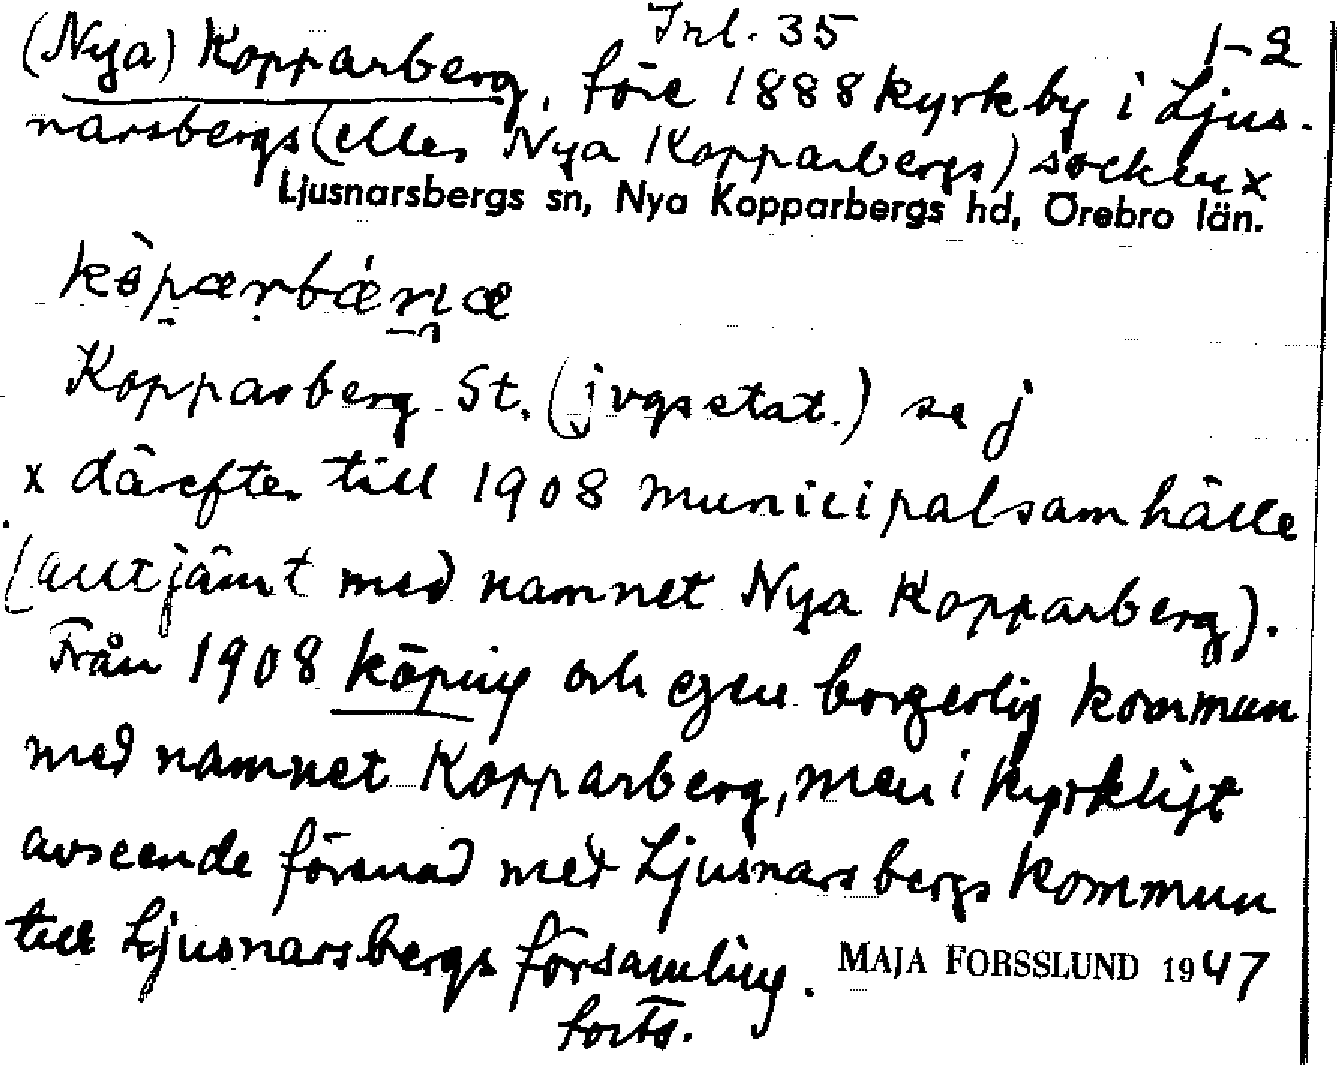 Inl. 35
1-2
(Nya) Kopparberg, före 1888 kyrkby i Ljus-
narsbergs (eller Nya Kopparbergs) socken x
Ljusnarsbergs sn, Nya Kopparbergs hd, Örebro län.
Kopparberg St. (jvgsstat.) se j
x därefter till 1908 municipalsamhälle
(alltjämt med namnet Nya Kopparberg).
Från 1908 köping och egen borgerlig kommun
med namnet Kopparberg, men i kyrkligt
avseende förenad med Ljusnarsbergs kommun
till Ljusnarsbergs församling.
MAJA FORSSLUND 1947
forts.